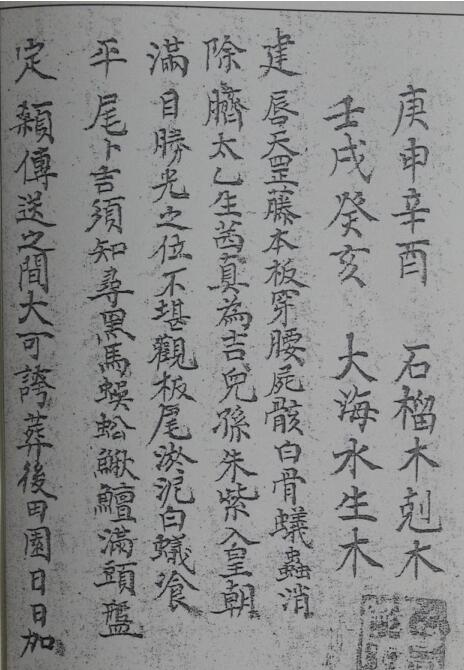 庚申辛酉 石榴木剋木
壬戌癸亥 大海水生木
建 唇天罡藤本板穿腰屍骸白骨蟻蟲消
除 臍太乙生茜真為吉兒孫朱紫入皇朝
滿 目勝光之位不堪觀板尾淤泥白蟻飡
平 尾卜吉須知尋黑馬蜈蚣鰍鱔滿頭盤
定 顙傳送之間大可誇葬後田園日日加